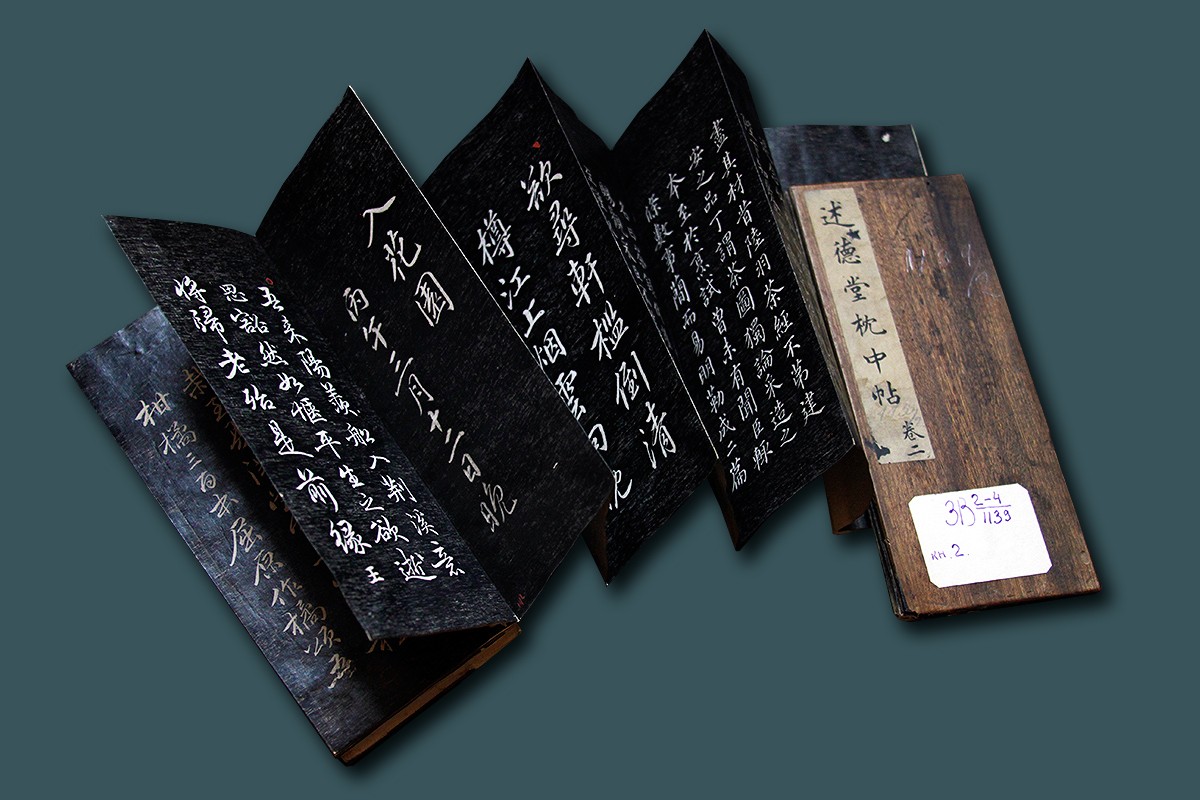 述德堂枕中帖
卷二
ЗВ 2-4
1139
кн. 2.
盡其材昔陸羽茶經不第建
安之品丁謂茶圖獨論采造之
本至於烹試曾未有聞臣輒
條數事簡而易明勒成二篇
欲尋軒檻倒清
樽江上烟雲向晚
入花園
丙午三月十二日晚
吾來陽羨船入荆溪意
思豁然如愜平生之欲逝
將歸老殆是前緣王
柑橘三百本屈原作橘頌吾